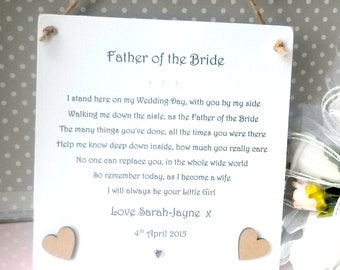 Father of the Bride
I stand here on my Wedding Day, with you by my side
Walking me down the aisle, as the Father of the Bride
The many things you've done, all the times you were there
Help me know deep down inside, how much you really care
No one can replace you, in the whole wide world
So remember today, as I become a wife
I will always be your Little Girl
Love Sarah-Jayne x
4th April 2015